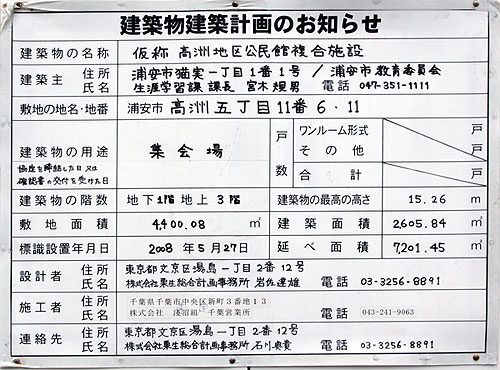 建築物建築計画のお知らせ
建築物の名称 仮称 高洲地区公民館複合施設
建築主 住所 浦安市猫実一丁目1番1号 / 浦安市教育委員会
氏名 生涯学習課 課長 宮木規男 電話 047-351-1111
敷地の地名・地番 浦安市 高洲五丁目11番6・11
建築物の用途 集会場
協定を締結した日又は
確認書の交付を受けた日
戸数 ワンルーム形式 戸
その他 戸
合計 戸
建築物の階数 地下1階 地上3階 建築物の最高の高さ 15.26 m
敷地面積 4,400.08 ㎡ 建築面積 2605.84 ㎡
標識設置年月日 2008年5月27日 延べ面積 7,201.45 ㎡
設計者 住所 東京都文京区湯島一丁目2番12号
氏名 株式会社栗生総合計画事務所 岩佐達雄 電話 03-3256-8891
施工者 住所 千葉県千葉市中央区新町3番地13
氏名 株式会社 淺沼組 千葉営業所 電話 043-241-9063
連絡先 住所 東京都文京区湯島一丁目2番12号
氏名 株式会社栗生総合計画事務所 石川典貴 電話 03-3256-8891